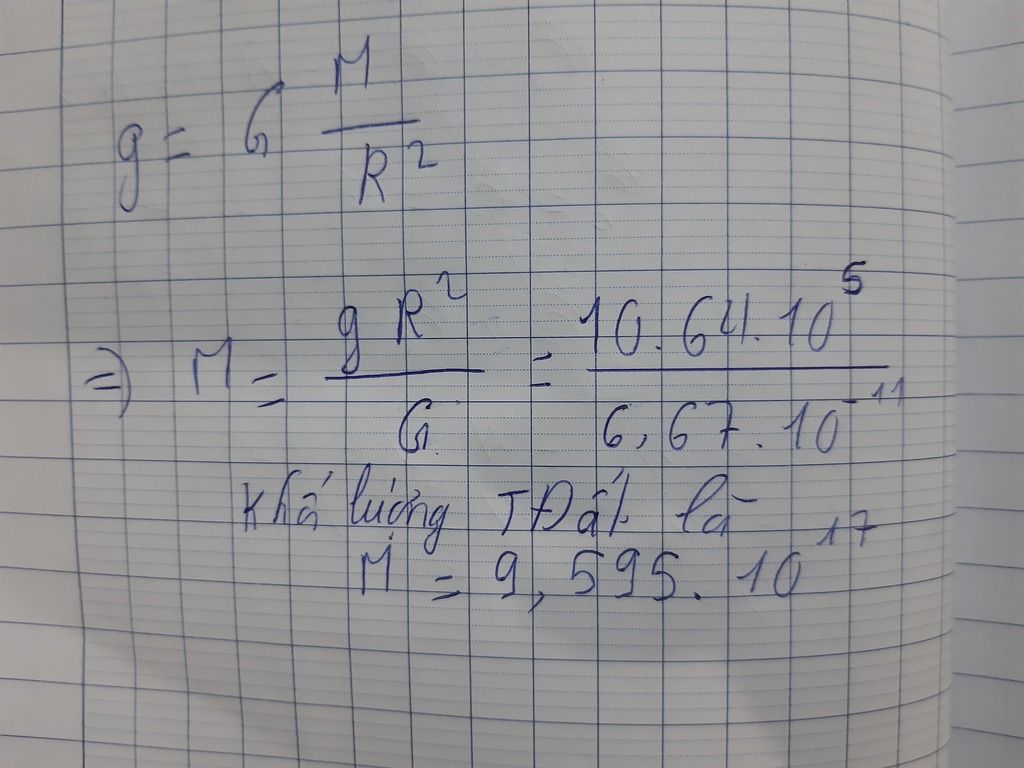 g = G M / R²
=) M = g R² / G = 10.64.10⁵ / 6,67.10⁻¹¹
Khố lượng TĐất là
M = 9,595.10¹⁷